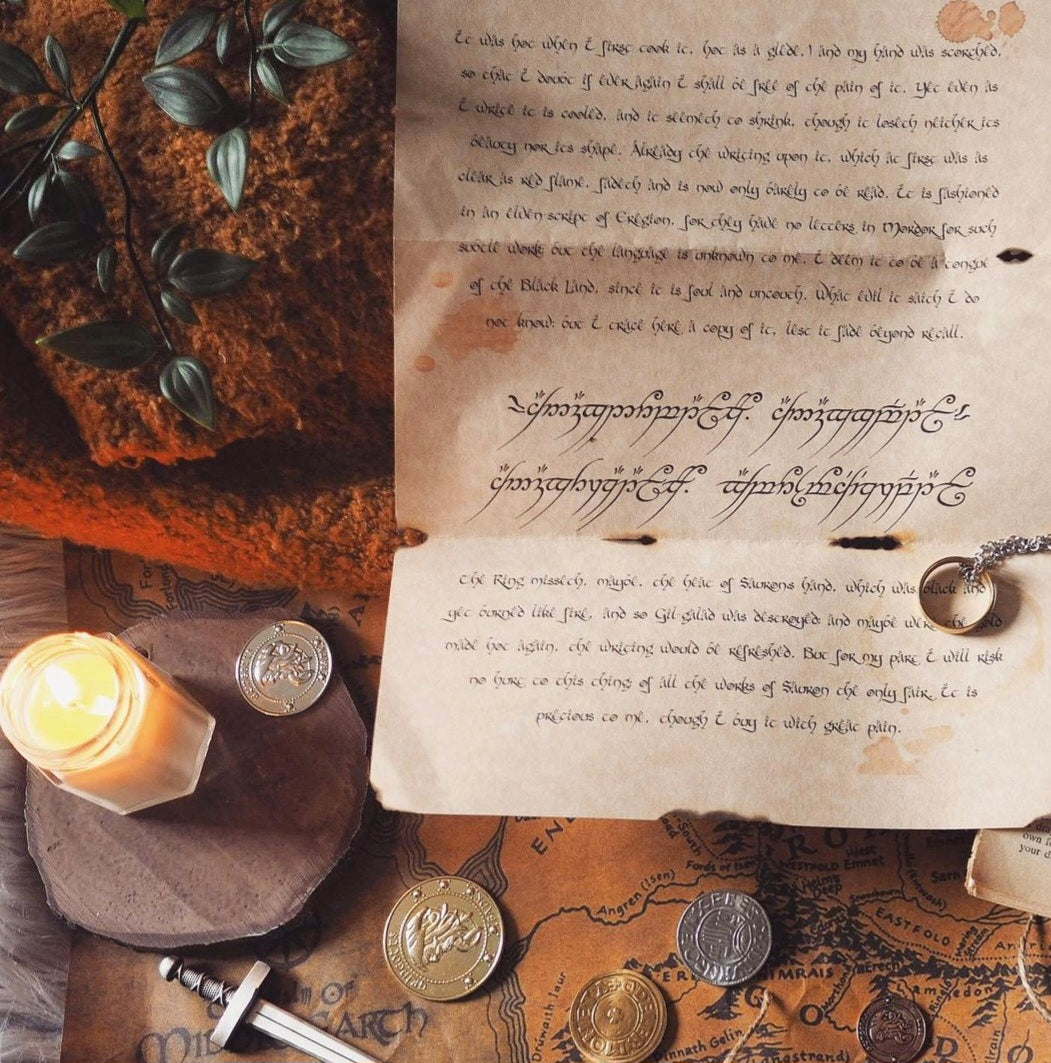 It was hot when I first took it, hot as a glede, and my hand was scorched,
so that I doubt if ever again I shall be free of the pain of it. Yet even as
I write it is cooled, and it seemeth to shrink, though it loseth neither its
beauty nor its shape. Already the writing upon it, which at first was as
clear as red flame, fadeth and is now only barely to be read. It is fashioned
in an elven script of Eregion, for they have no letters in Mordor for such
subtle work; but the language is unknown to me. I deem it to be a tongue
of the Black Land, since it is foul and uncouth. What evil it saith I do
not know; but I trace here a copy of it, lest it fade beyond recall.
The Ring misseth, maybe, the heat of Saurons hand, which was black and
yet burned like fire, and so Gil-galad was destroyed; and maybe were the gold
made hot again, the writing would be refreshed. But for my part I will risk
no hurt to this thing of all the works of Sauron the only fair. It is
precious to me, though I buy it with great pain.
own
your d
Fords of Isen
WESTFOLD
West Emnet
Helm's Deep
Sarn
Angren (Isen)
Snowbourn
EASTFOLD
Erech
Lamedon
Drúwaith Iaur
Pinnath Gelin
OF